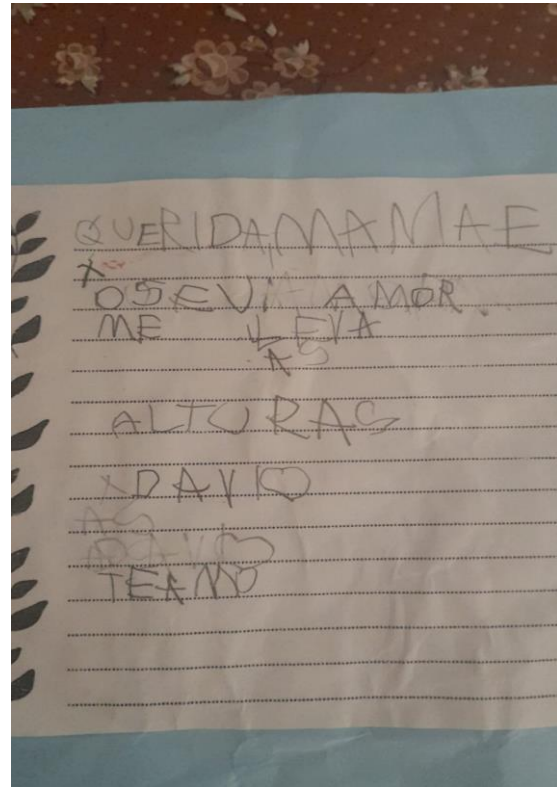 QUERIDA MAMAE
X
OSEVI AMOR
ME LEVA
AS
ALTURAS
X DAVI
AS
DAVI
TEAMO